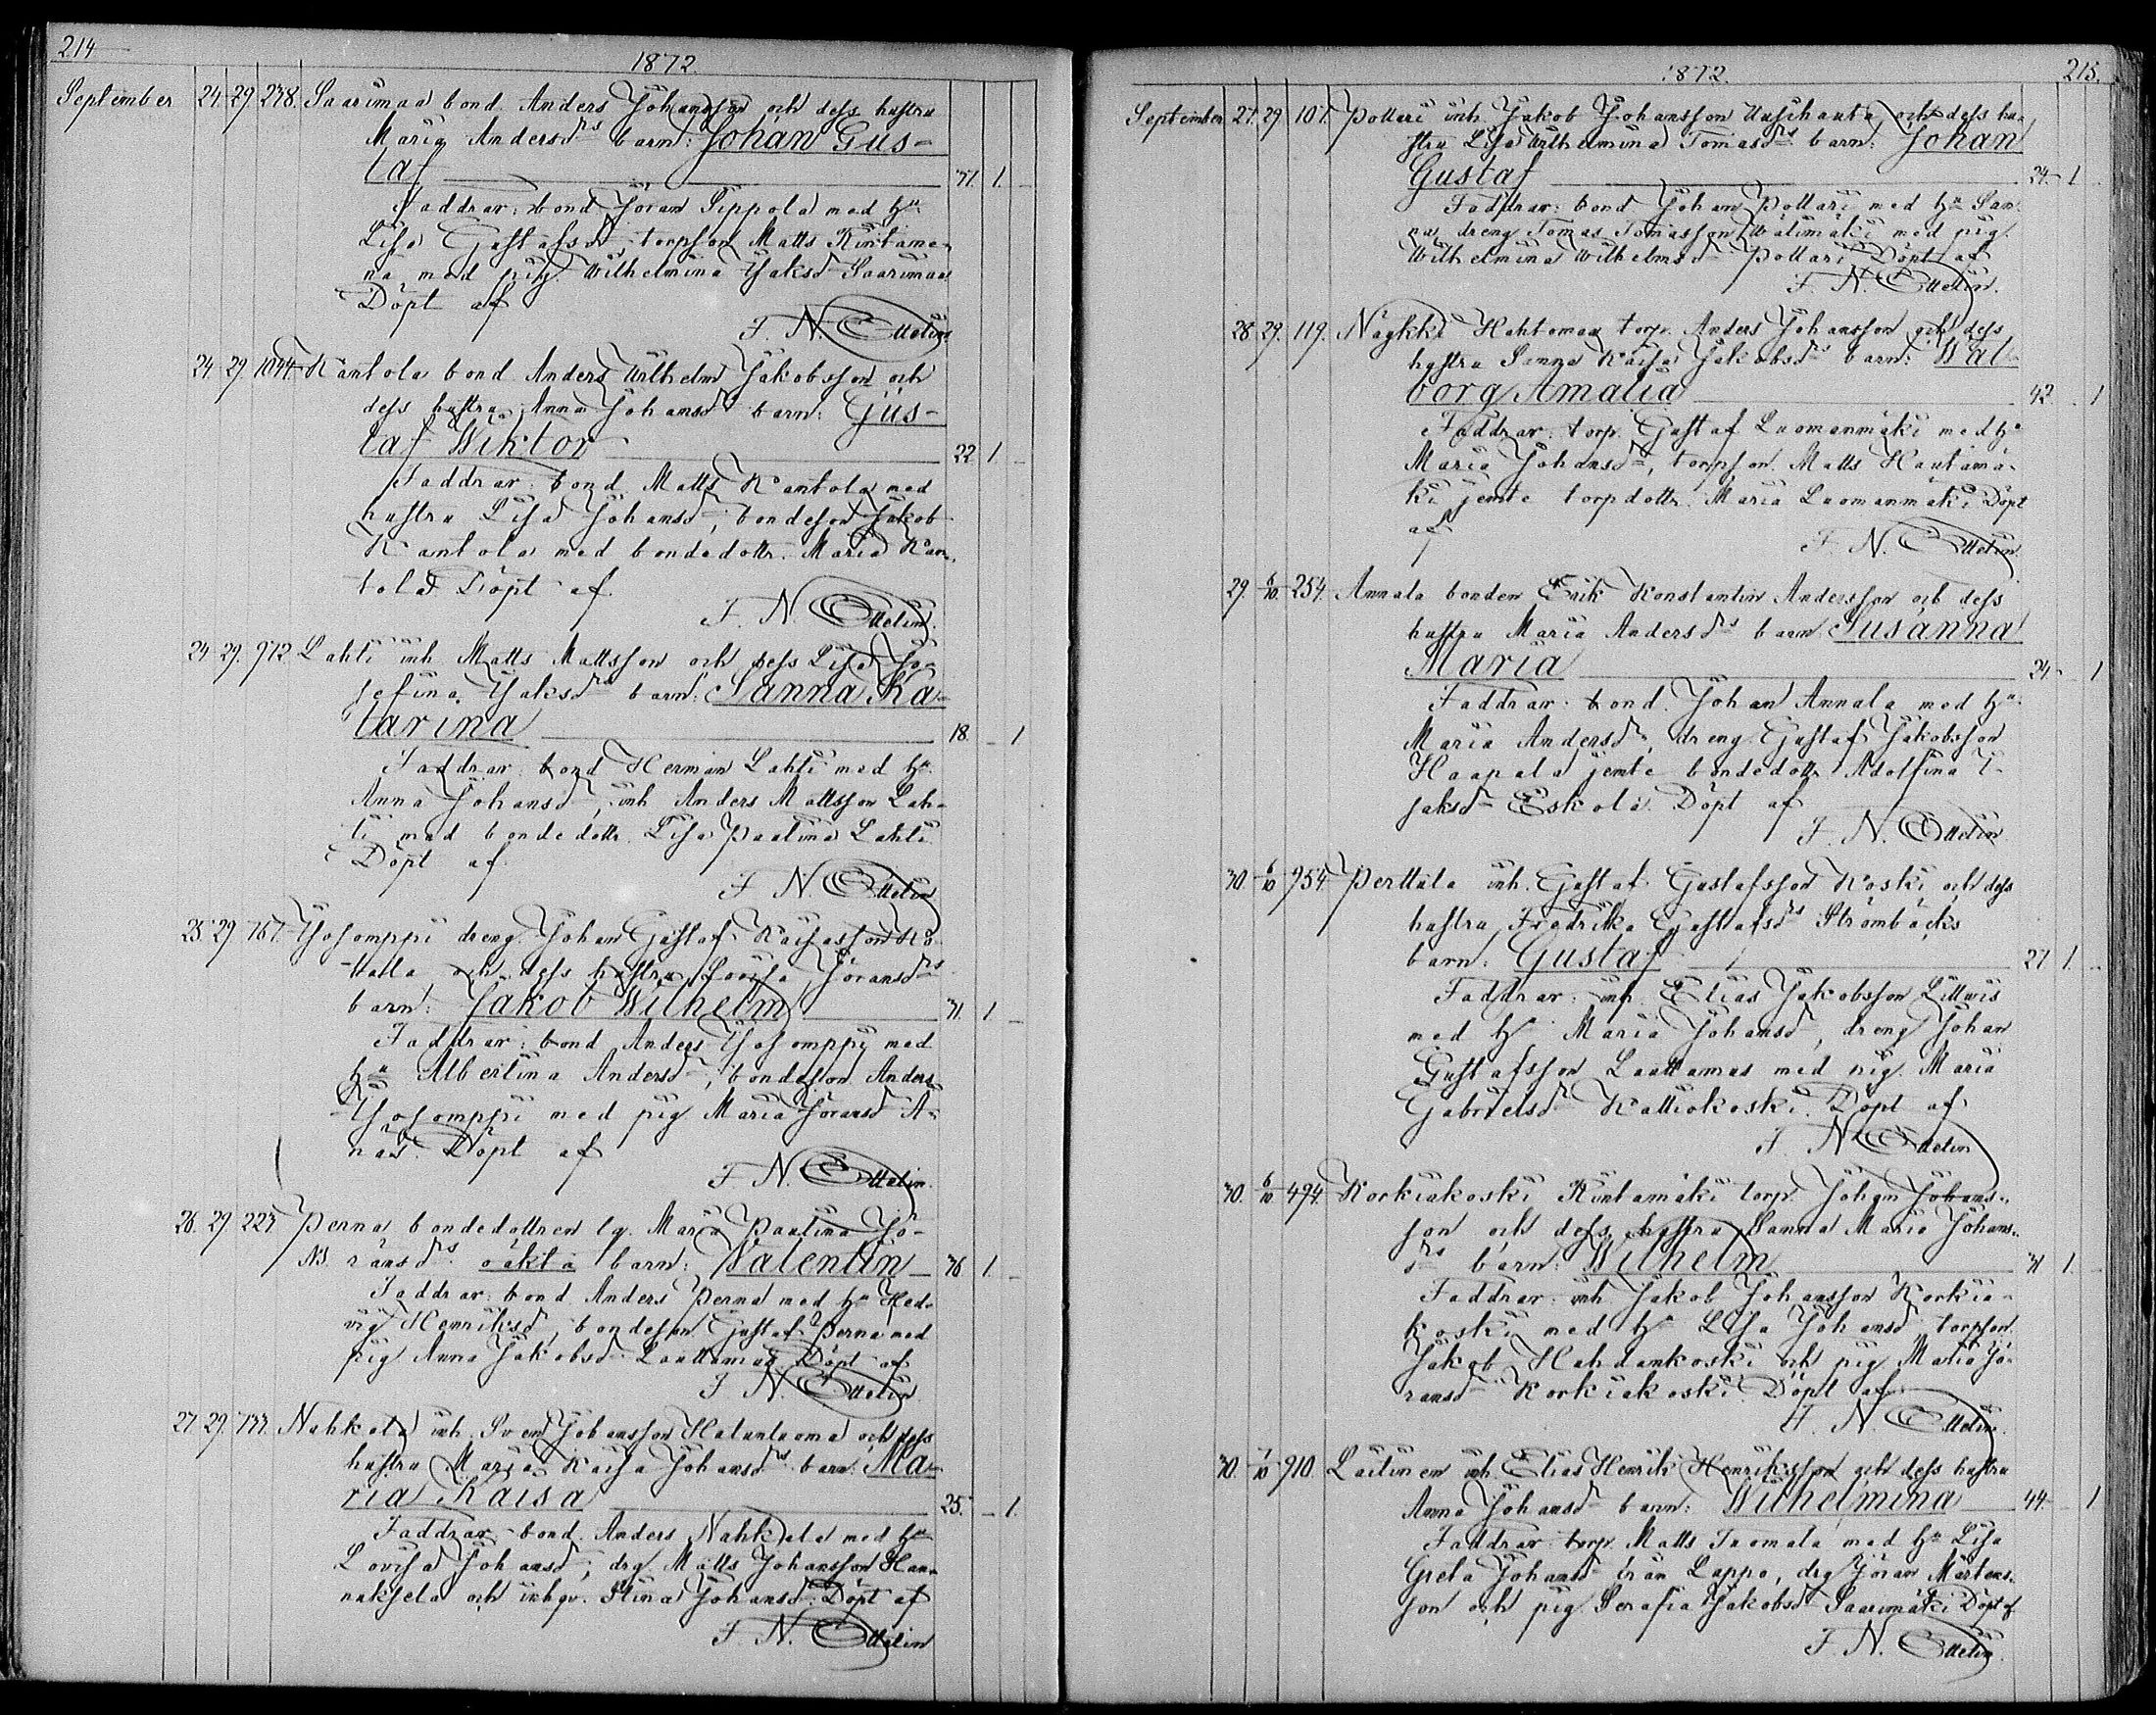 214
1872.
September 24. 29. 238. Saarimaa bond. Anders Johansson och dess hustru
Maria Andersdrs barn: Johan Gus-
taf 37. 1. -
Faddrar: bond Jöran Sippola med hu
Lisa Gustafsd, torpson Matts Rintama-
ma med pig. Wilhelmina Isaksd Saarimaa
Döpt af
F. N. Ottelin
24. 29. 1044. Kantola bond Anders Wilhelm Jakobsson och
dess hustru Anna Johansd barn: Gus-
taf Wiktor 22 1. -
Faddrar: bond Matts Kantola med
hustru Lisa Johansd, bondeson Jakob
Kantola med bondedottr. Maria Kan-
tola Döpt af
F. N. Ottelin
24. 29. 972. Lahti inh Matts Mattsson och dess Lisa Jo-
sefina Isaksdrs barn: Sanna Ka-
tarina 18. - 1
Faddrar: bond Herman Lahti med hu.
Anna Johansd, inh Anders Mattsson Lah-
ti med bondedottr. Lisa Paulina Lahti
Döpt af
F. N. Ottelin
25. 29. 767. dreng. Johan Gustaf
och dess hustru Lovisa Joransdrs
barn: Jakob Wilhelm 31. 1. -
Faddrar: bond Anders med
hu Albertina Andersd, bondeson Anders
med pig. Maria Joransd A-
Döpt af
F. N. Ottelin
26. 29. 223. Perna bondedottren lg. Maria Paulina Jo-
NB. ransdrs oäkta barn: Valentin 36 1. -
Faddrar: bond. Anders Perna med hu Hed-
vig Henriksd, bondeson Gustaf Perna med
pig Anna Jakobsd Luuttamus Döpt af
F. N. Ottelin
27. 29. 733. Nahkala inh. Sven Johansson Haluntuoma och dess
hustru Maria Kaisa Johansdrs barn: Ma-
ria Kaisa 25. - 1.
Faddrar: bond. Anders Nahkala med hu
Lovisa Johansd, drg. Matts Johansson Han-
nuksela och inhqv. Stina Johansd. Döpt af
F. N. Ottelin
1872.
215.
September 27. 29 107. Pottari inh. Jakob Johansson Uusihauta och dess hu-
stru Lisa Wilhelmina Tomasdrs barn: Johan
Gustaf 24. 1 -
Faddrar: bond Johan Pottari med hu San-
na, dreng Tomas Tomasson Wälimäki med pig.
Wilhelmina Wilhelmsd Pottari Döpt af
F. N. Ottelin.
28. 29. 119. Hahtomaa torp. Anders Johansson och dess
hustru Sanna Kaisa Jakobsdrs barn: Wal-
borg Amalia 42. - 1
Faddrar: torp. Gustaf Luomanmäki med hu
Maria Johansd, torpson Matts Hautamä-
ki jemte torpdottr. Maria Luomanmäki Döpt
af
F. N. Ottelin.
29. 6/10. 254. Annala bonden Erik Konstantin Andersson och dess
hustru Maria Andersdrs barn: Susanna
Maria 24. - 1
Faddrar: bond. Johan Annala med hu.
Maria Andersd, dreng Gustaf Jakobsson
Haapala jemte bondedottr. Adolfina I-
saksd Eskola. Döpt af
F. N. Ottelin
30. 6/10 954 Perttula inh. Gustaf Gustafsson Koski och dess
hustru Fredrika Gustafsdrs Strömbäcks
barn: Gustaf 27 1. -
Faddrar: inh. Elias Jakobsson
med hu Maria Johansd, dreng Johan
Gustafsson Luuttamus med pig. Maria
Gabrielsd Kattiokoski. Döpt af
F. N. Ottelin
30. 6/10 494. Korkiakoski Rintamäki torp. Johan Johans-
son och dess hustru Sanna Maria Johans-
drs barn: Wilhelm 31 1. -
Faddrar: inh Jakob Johansson Korkia-
koski med hu Lisa Johansd torpson
Jakob Hahdankoski och pig Maria Jö-
ransd Korkiakoski Döpt af
F. N. Ottelin.
30. 7/10 910. Laitinen inh. Elias Henrik Henriksson och dess hustru
Anna Johansd barn: Wilhelmina 44. - 1
Faddrar: torp. Matts Tuomala med hu Lisa
Greta Johansd från Lappo, drg Jöran Mårtens-
son och pig. Serafia Jakobsd Saarimäki Döpt af
F. N. Ottelin.